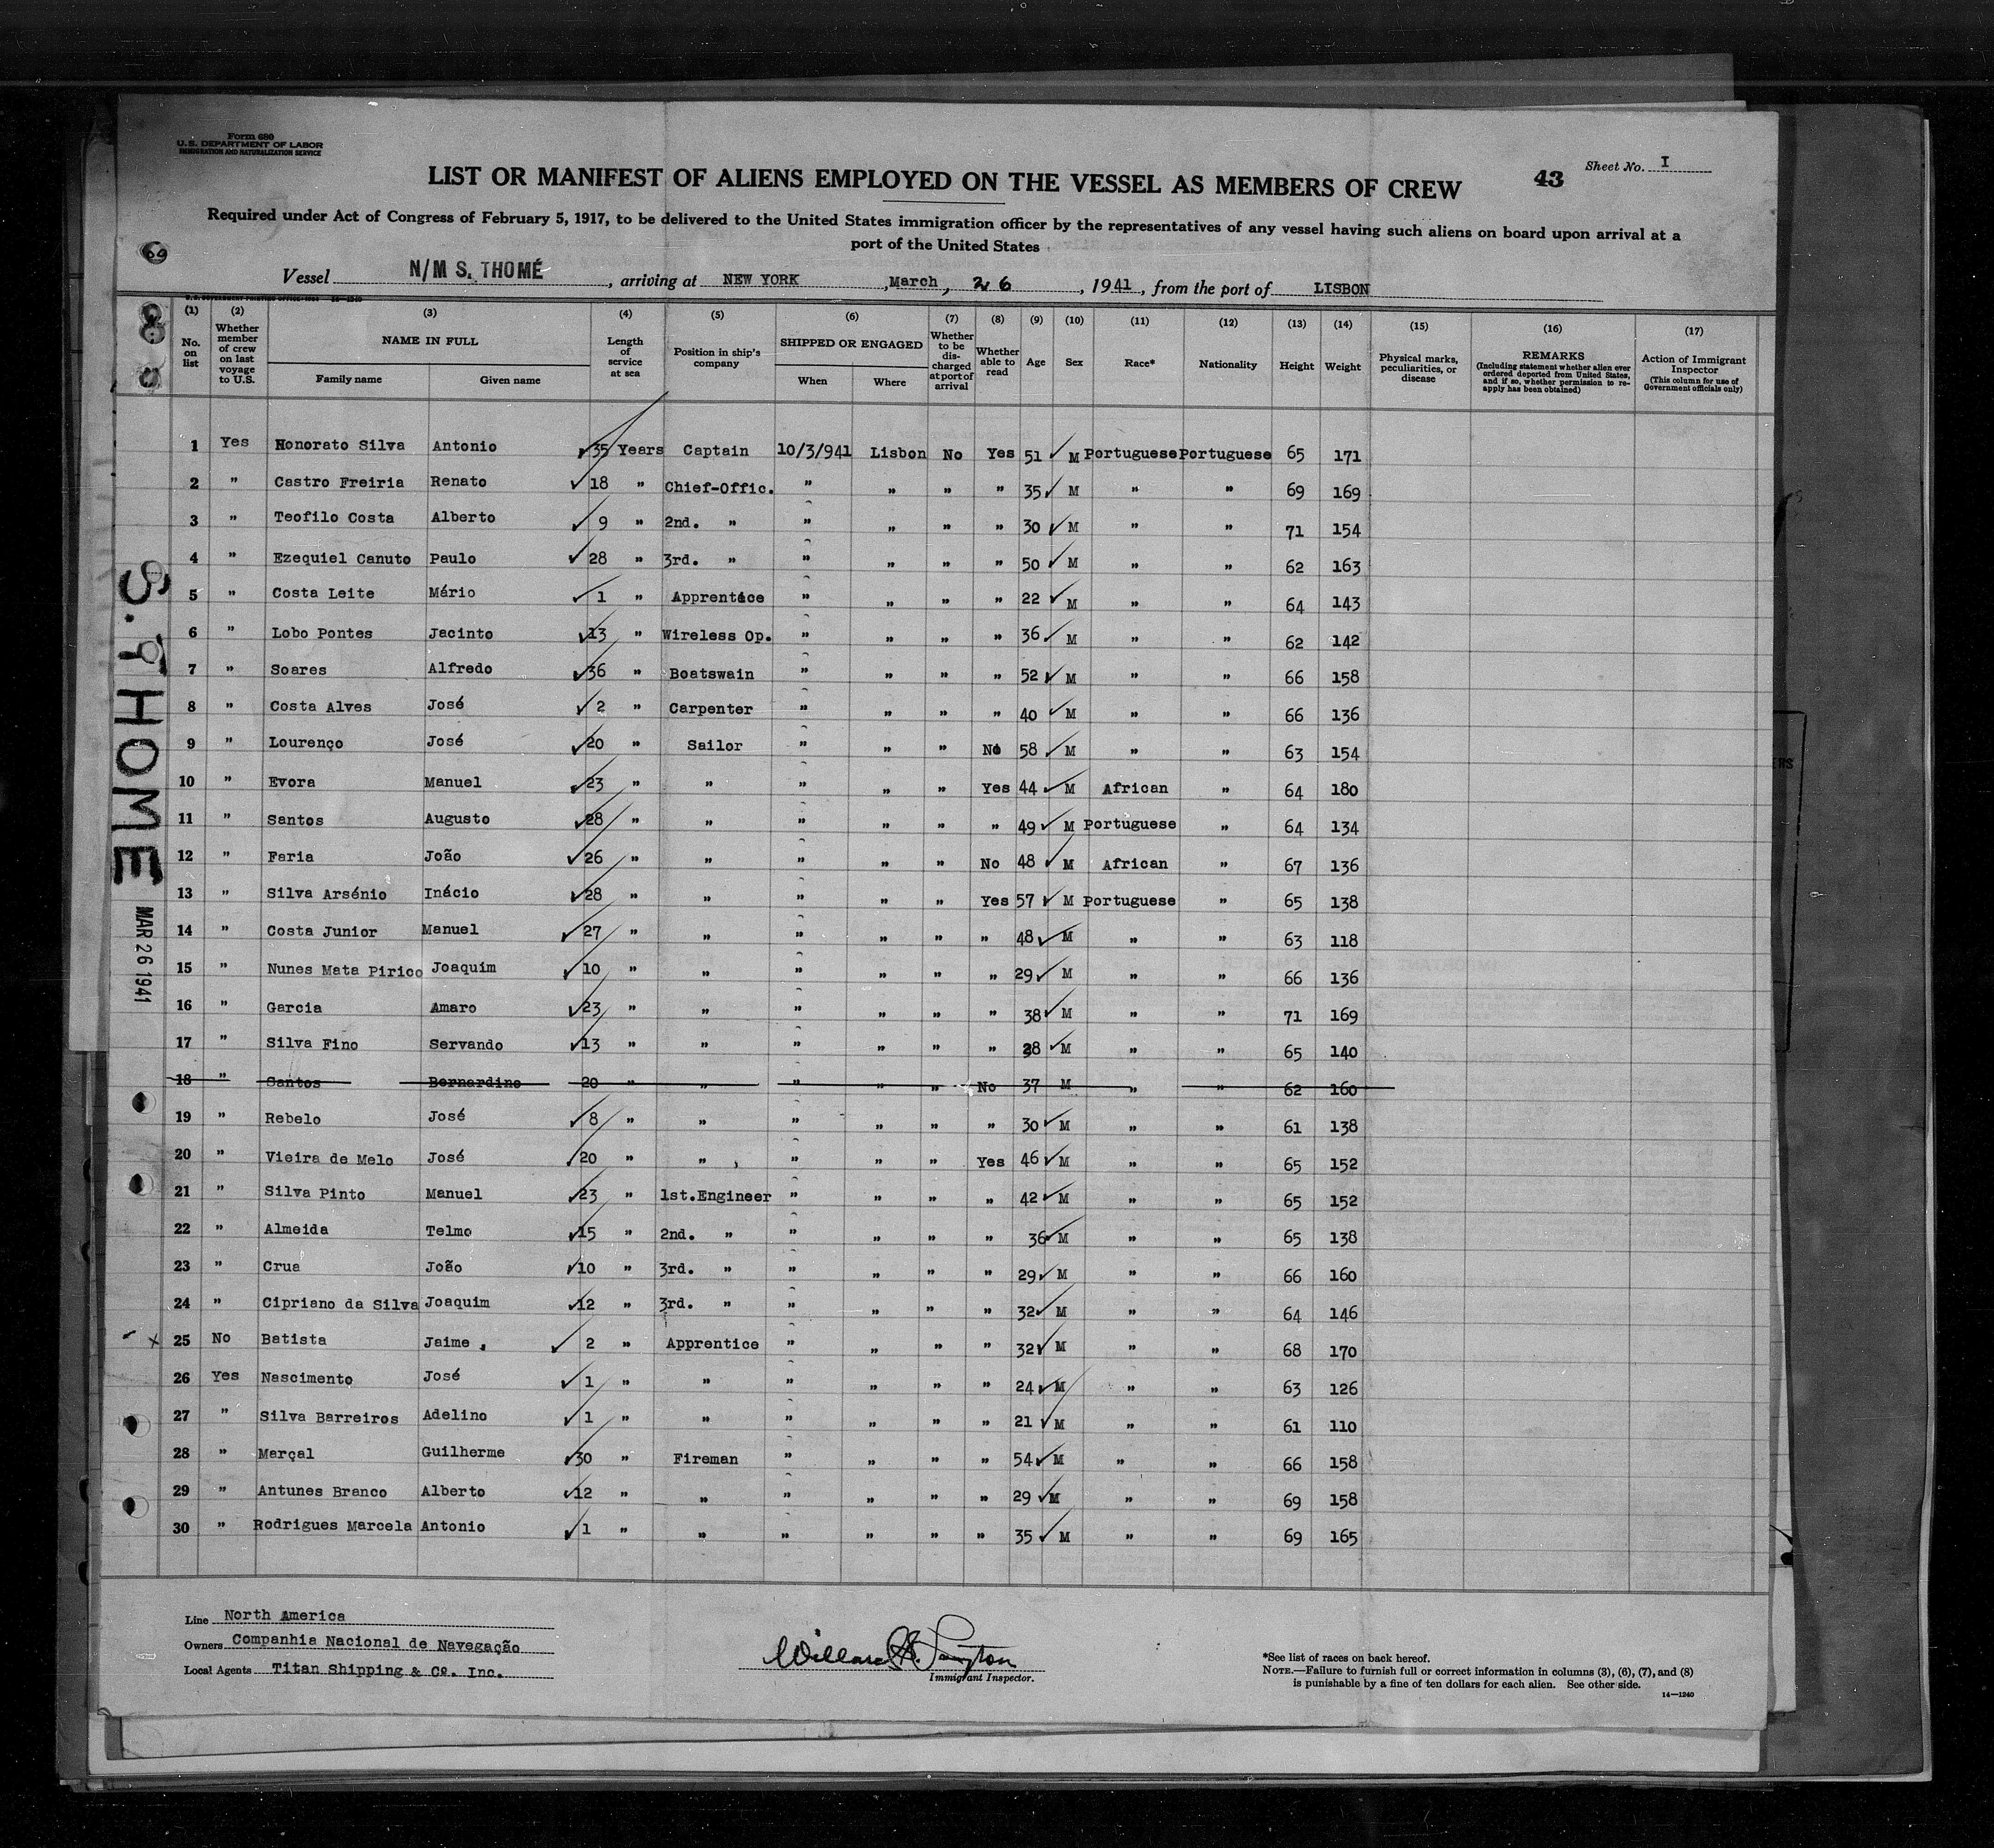 Form 680
U.S. DEPARTMENT OF LABOR
IMMIGRATION AND NATURALIZATION SERVICE
LIST OR MANIFEST OF ALIENS EMPLOYED ON THE VESSEL AS MEMBERS OF CREW
43
Sheet No. I
Required under Act of Congress of February 5, 1917, to be delivered to the United States immigration officer by the representatives of any vessel having such aliens on board upon arrival at a
port of the United States
Vessel N/M S. THOMÉ, arriving at NEW YORK, March, 26, 1941, from the port of LISBON
(1) No. on list (2) Whether member of crew on last voyage to U.S. (3) NAME IN FULL Family name Given name (4) Length of service at sea (5) Position in ship's company (6) SHIPPED OR ENGAGED When Where (7) Whether to be discharged at port of arrival (8) Whether able to read (9) Age (10) Sex (11) Race* (12) Nationality (13) Height (14) Weight (15) Physical marks, peculiarities, or disease (16) REMARKS (Including statement whether alien ever ordered deported from United States, and if so, whether permission to reapply has been obtained) (17) Action of Immigrant Inspector (This column for use of Government officials only)
1 Yes Honorato Silva Antonio 35 Years Captain 10/3/941 Lisbon No Yes 51 M Portuguese Portuguese 65 171
2 " Castro Freiria Renato 18 " Chief-Offic. " " " " 35 M " " 69 169
3 " Teofilo Costa Alberto 9 " 2nd. " " " " " 30 M " " 71 154
4 " Ezequiel Canuto Paulo 28 " 3rd. " " " " " 50 M " " 62 163
5 " Costa Leite Mário 1 " Apprentice " " " " 22 M " " 64 143
6 " Lobo Pontes Jacinto 13 " Wireless Op. " " " " 36 M " " 62 142
7 " Soares Alfredo 36 " Boatswain " " " " 52 M " " 66 158
8 " Costa Alves José 2 " Carpenter " " " " 40 M " " 66 136
9 " Lourenço José 20 " Sailor " " " No 58 M " " 63 154
10 " Evora Manuel 23 " " " " " Yes 44 M African " 64 180
11 " Santos Augusto 28 " " " " " " 49 M Portuguese " 64 134
12 " Faria João 26 " " " " " No 48 M African " 67 136
13 " Silva Arsénio Inácio 28 " " " " " Yes 57 M Portuguese " 65 138
14 " Costa Junior Manuel 27 " " " " " " 48 M " " 63 118
15 " Nunes Mata Pirico Joaquim 10 " " " " " " 29 M " " 66 136
16 " Garcia Amaro 23 " " " " " " 38 M " " 71 169
17 " Silva Fino Servando 13 " " " " " " 38 M " " 65 140
18 " Santos Bernardino 20 " " " " " No 37 M " " 62 160
19 " Rebelo José 8 " " " " " " 30 M " " 61 138
20 " Vieira de Melo José 20 " " " " " Yes 46 M " " 65 152
21 " Silva Pinto Manuel 23 " 1st.Engineer " " " " 42 M " " 65 152
22 " Almeida Telmo 15 " 2nd. " " " " " 36 M " " 65 138
23 " Crua João 10 " 3rd. " " " " " 29 M " " 66 160
24 " Cipriano da Silva Joaquim 12 " 3rd. " " " " " 32 M " " 64 146
x 25 No Batista Jaime 2 " Apprentice " " " " 32 M " " 68 170
26 Yes Nascimento José 1 " " " " " " 24 M " " 63 126
27 " Silva Barreiros Adelino 1 " " " " " " 21 M " " 61 110
28 " Marçal Guilherme 30 " Fireman " " " " 54 M " " 66 158
29 " Antunes Branco Alberto 12 " " " " " " 29 M " " 69 158
30 " Rodrigues Marcela Antonio 1 " " " " " " 35 M " " 69 165
S. THOME
MAR 26 1941
Line North America
Owners Companhia Nacional de Navegação
Local Agents Titan Shipping & Co. Inc.
Immigrant Inspector.
*See list of races on back hereof.
NOTE.—Failure to furnish full or correct information in columns (3), (6), (7), and (8)
is punishable by a fine of ten dollars for each alien. See other side.
14—1240